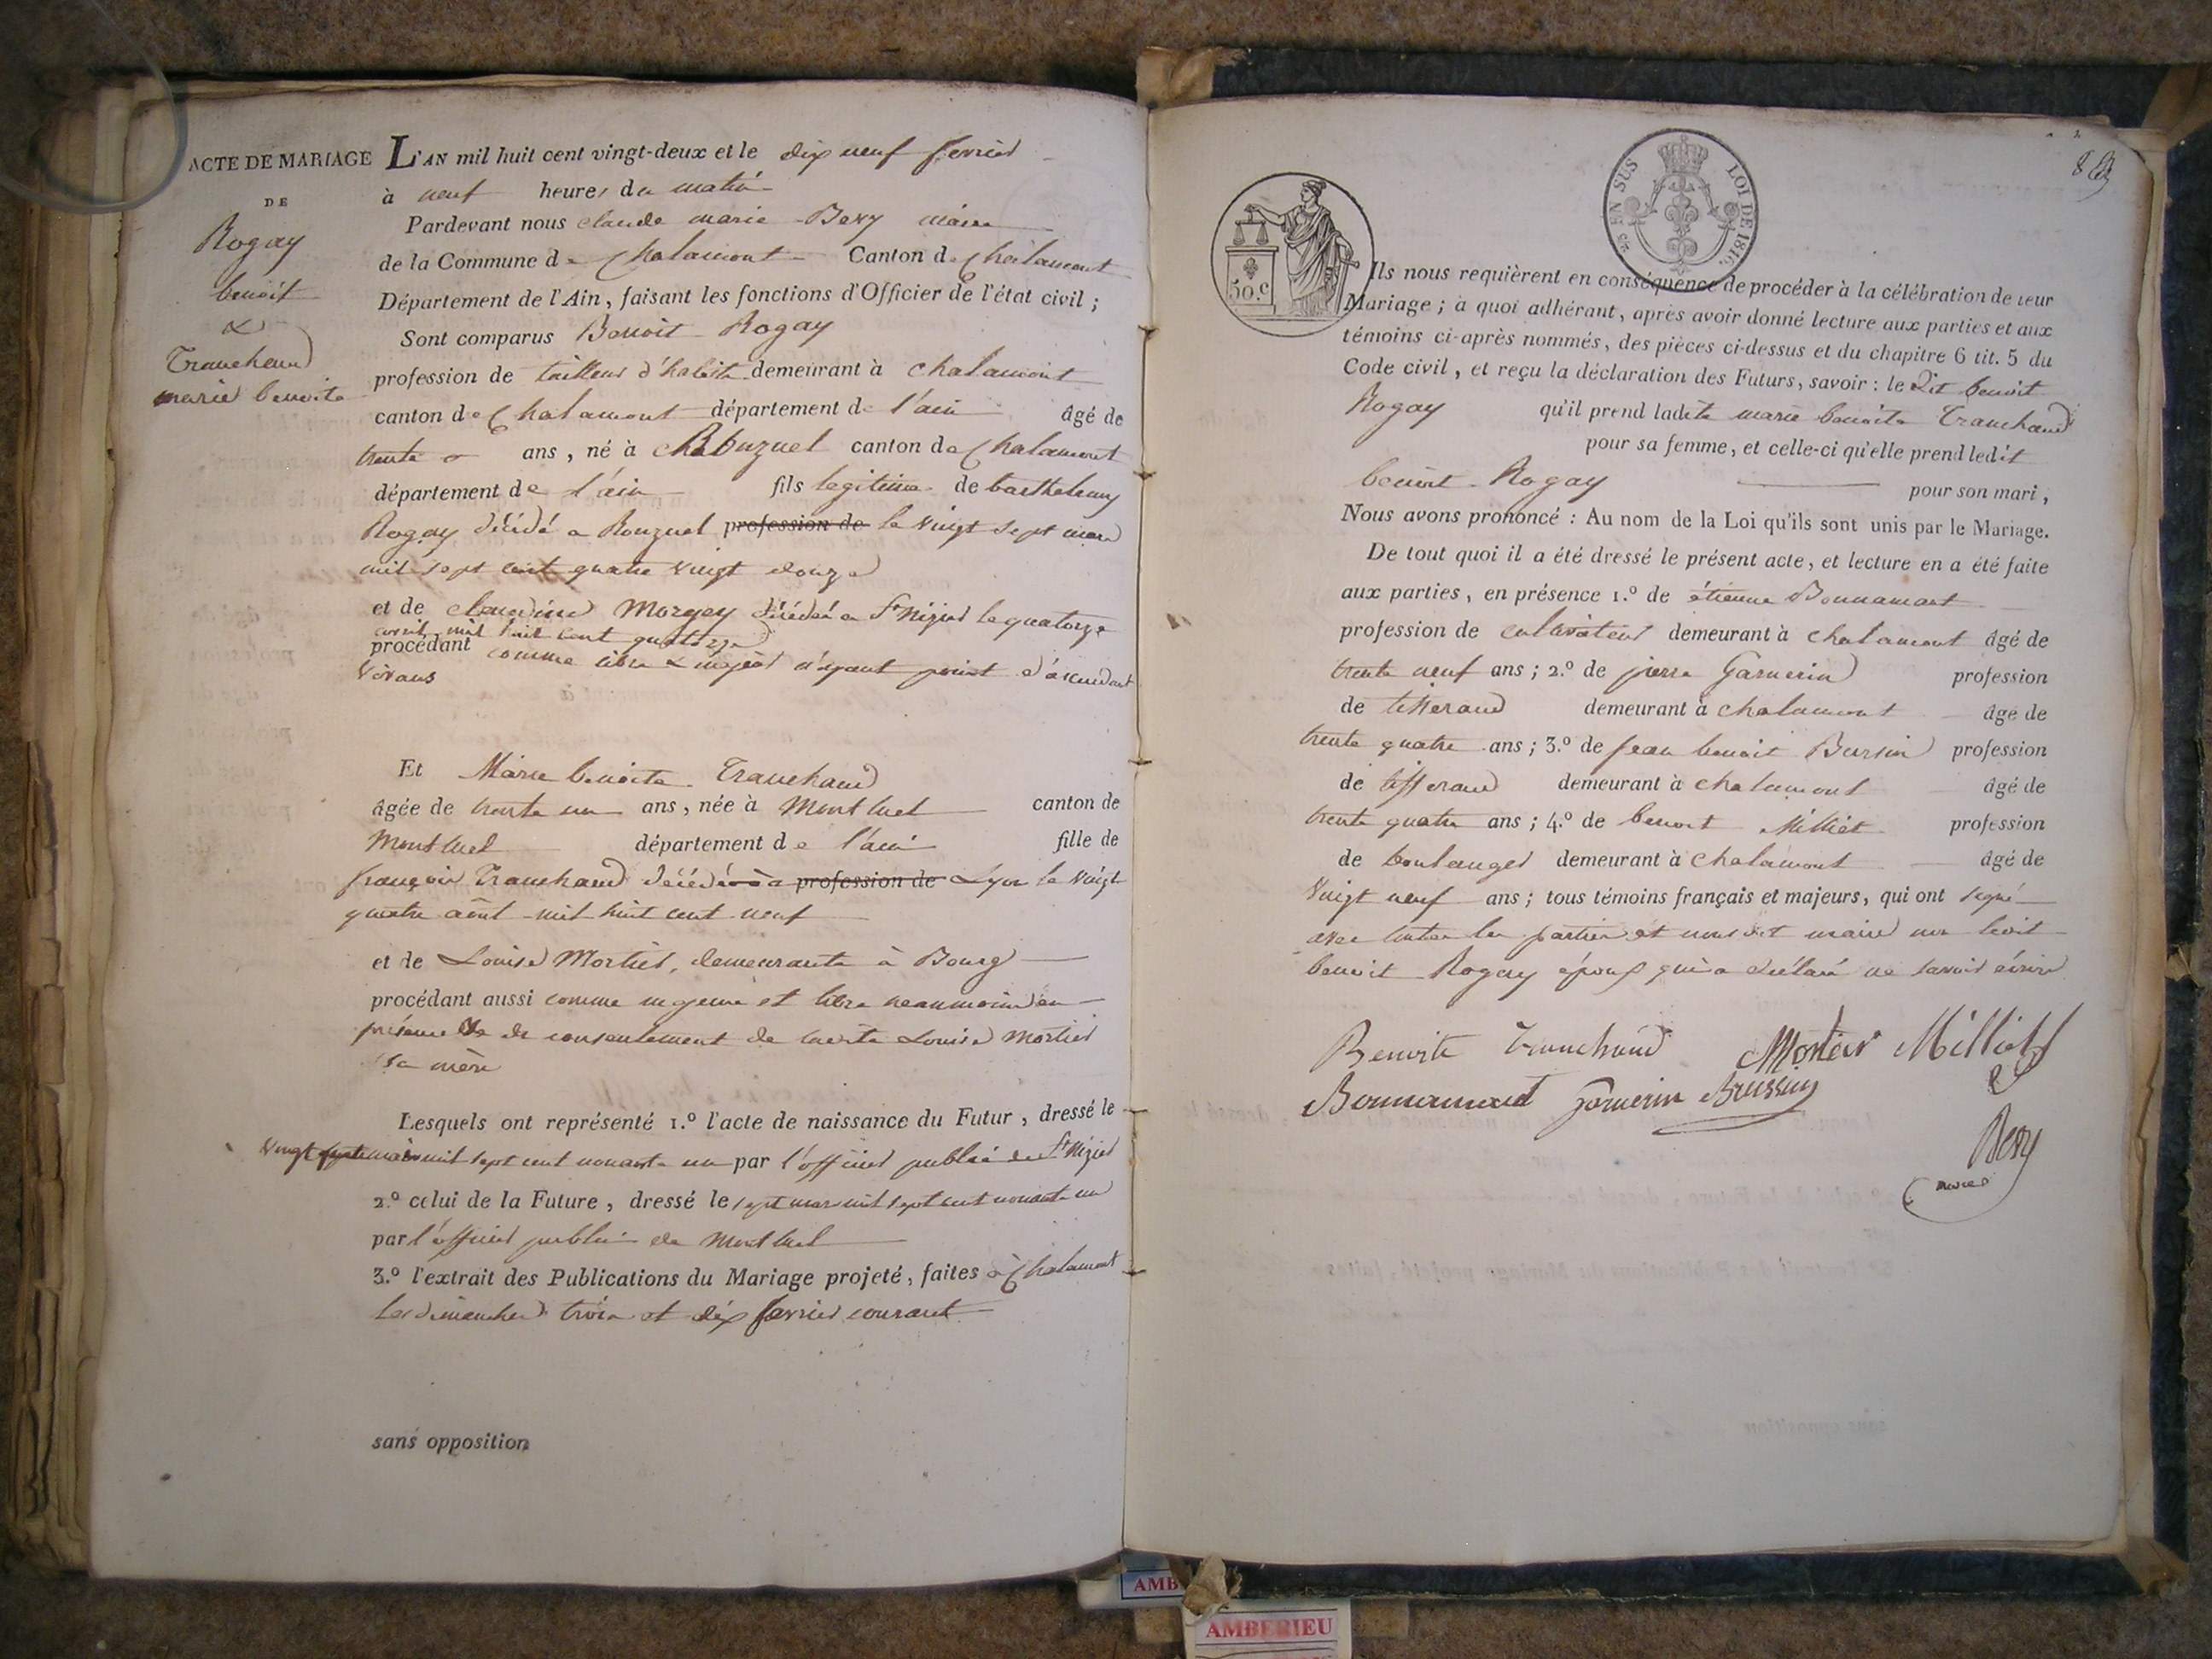 ACTE DE MARIAGE
DE
Rogay
benoit
&
Tranchand
marie benoite
L'AN mil huit cent vingt-deux et le dix neuf fevrier
à neuf heures du matin
Pardevant nous claude marie Bexy maire
de la Commune de Chalamont Canton de Chalamont
Département de l'Ain, faisant les fonctions d'Officier de l'état civil ;
Sont comparus Benoit Rogay
profession de tailleur d'habits demeurant à chalamont
canton de Chalamont département de l'ain âgé de
trente ans, né à canton de Chalamont
département de l'ain fils legitime de barthelemy
Rogay décédé a Ronzuel profession de le vingt sept mars
mil sept cent quatre vingt douze
et de claudine Morgey décédée a St Nizier le quatorze
avril mil huit cent quatorze
procédant comme libre & majeur n'ayant point d'ascendant
vivans
Et Marie benoite Tranchand
âgée de trente un ans, née à Montluel canton de
Montluel département de l'ain fille de
françois Tranchand décédé a profession de Lyon le vingt
quatre août mil huit cent neuf
et de Louise Mortier, demeurante à Bourg
procédant aussi comme majeure et libre neanmoins en
présence & du consentement de ladite Louise Mortier
sa mère
Lesquels ont représenté 1.º l'acte de naissance du Futur, dressé le
vingt mil sept cent nonante un par l'officier public de St Nizier
2.º celui de la Future, dressé le sept mars mil sept cent nonante un
par l'officier public de Montluel
3.º l'extrait des Publications du Mariage projeté, faites à Chalamont
les dimanches trois et dix fevrier courant
sans opposition
50.C
EN SUS LOI DE 1816.
Ils nous requièrent en conséquence de procéder à la célébration de leur
Mariage ; à quoi adhérant, après avoir donné lecture aux parties et aux
témoins ci-après nommés, des pièces ci-dessus et du chapitre 6 tit. 5 du
Code civil, et reçu la déclaration des Futurs, savoir : le dit benoit
Rogay qu'il prend ladite marie benoite Tranchand
pour sa femme, et celle-ci qu'elle prend ledit
benoit Rogay pour son mari,
Nous avons prononcé : Au nom de la Loi qu'ils sont unis par le Mariage.
De tout quoi il a été dressé le présent acte, et lecture en a été faite
aux parties, en présence 1.º de étienne Bonnamant
profession de cultivateur demeurant à chalamont âgé de
trente neuf ans ; 2.º de pierre Garnerin profession
de tisserand demeurant à chalamont âgé de
trente quatre ans ; 3.º de jean benoit Bursin profession
de tisserand demeurant à chalamont âgé de
trente quatre ans ; 4.º de benoit Milliat profession
de boulanger demeurant à chalamont âgé de
vingt neuf ans ; tous témoins français et majeurs, qui ont signé
avec toutes les parties et nous dit maire non ledit
benoit Rogay époux qui a déclaré ne savoir écrire
Benoite Tranchand Mortier Milliat
Bonnamant Garnerin Brussin
Bexy
maire
AMB
AMBERIEU